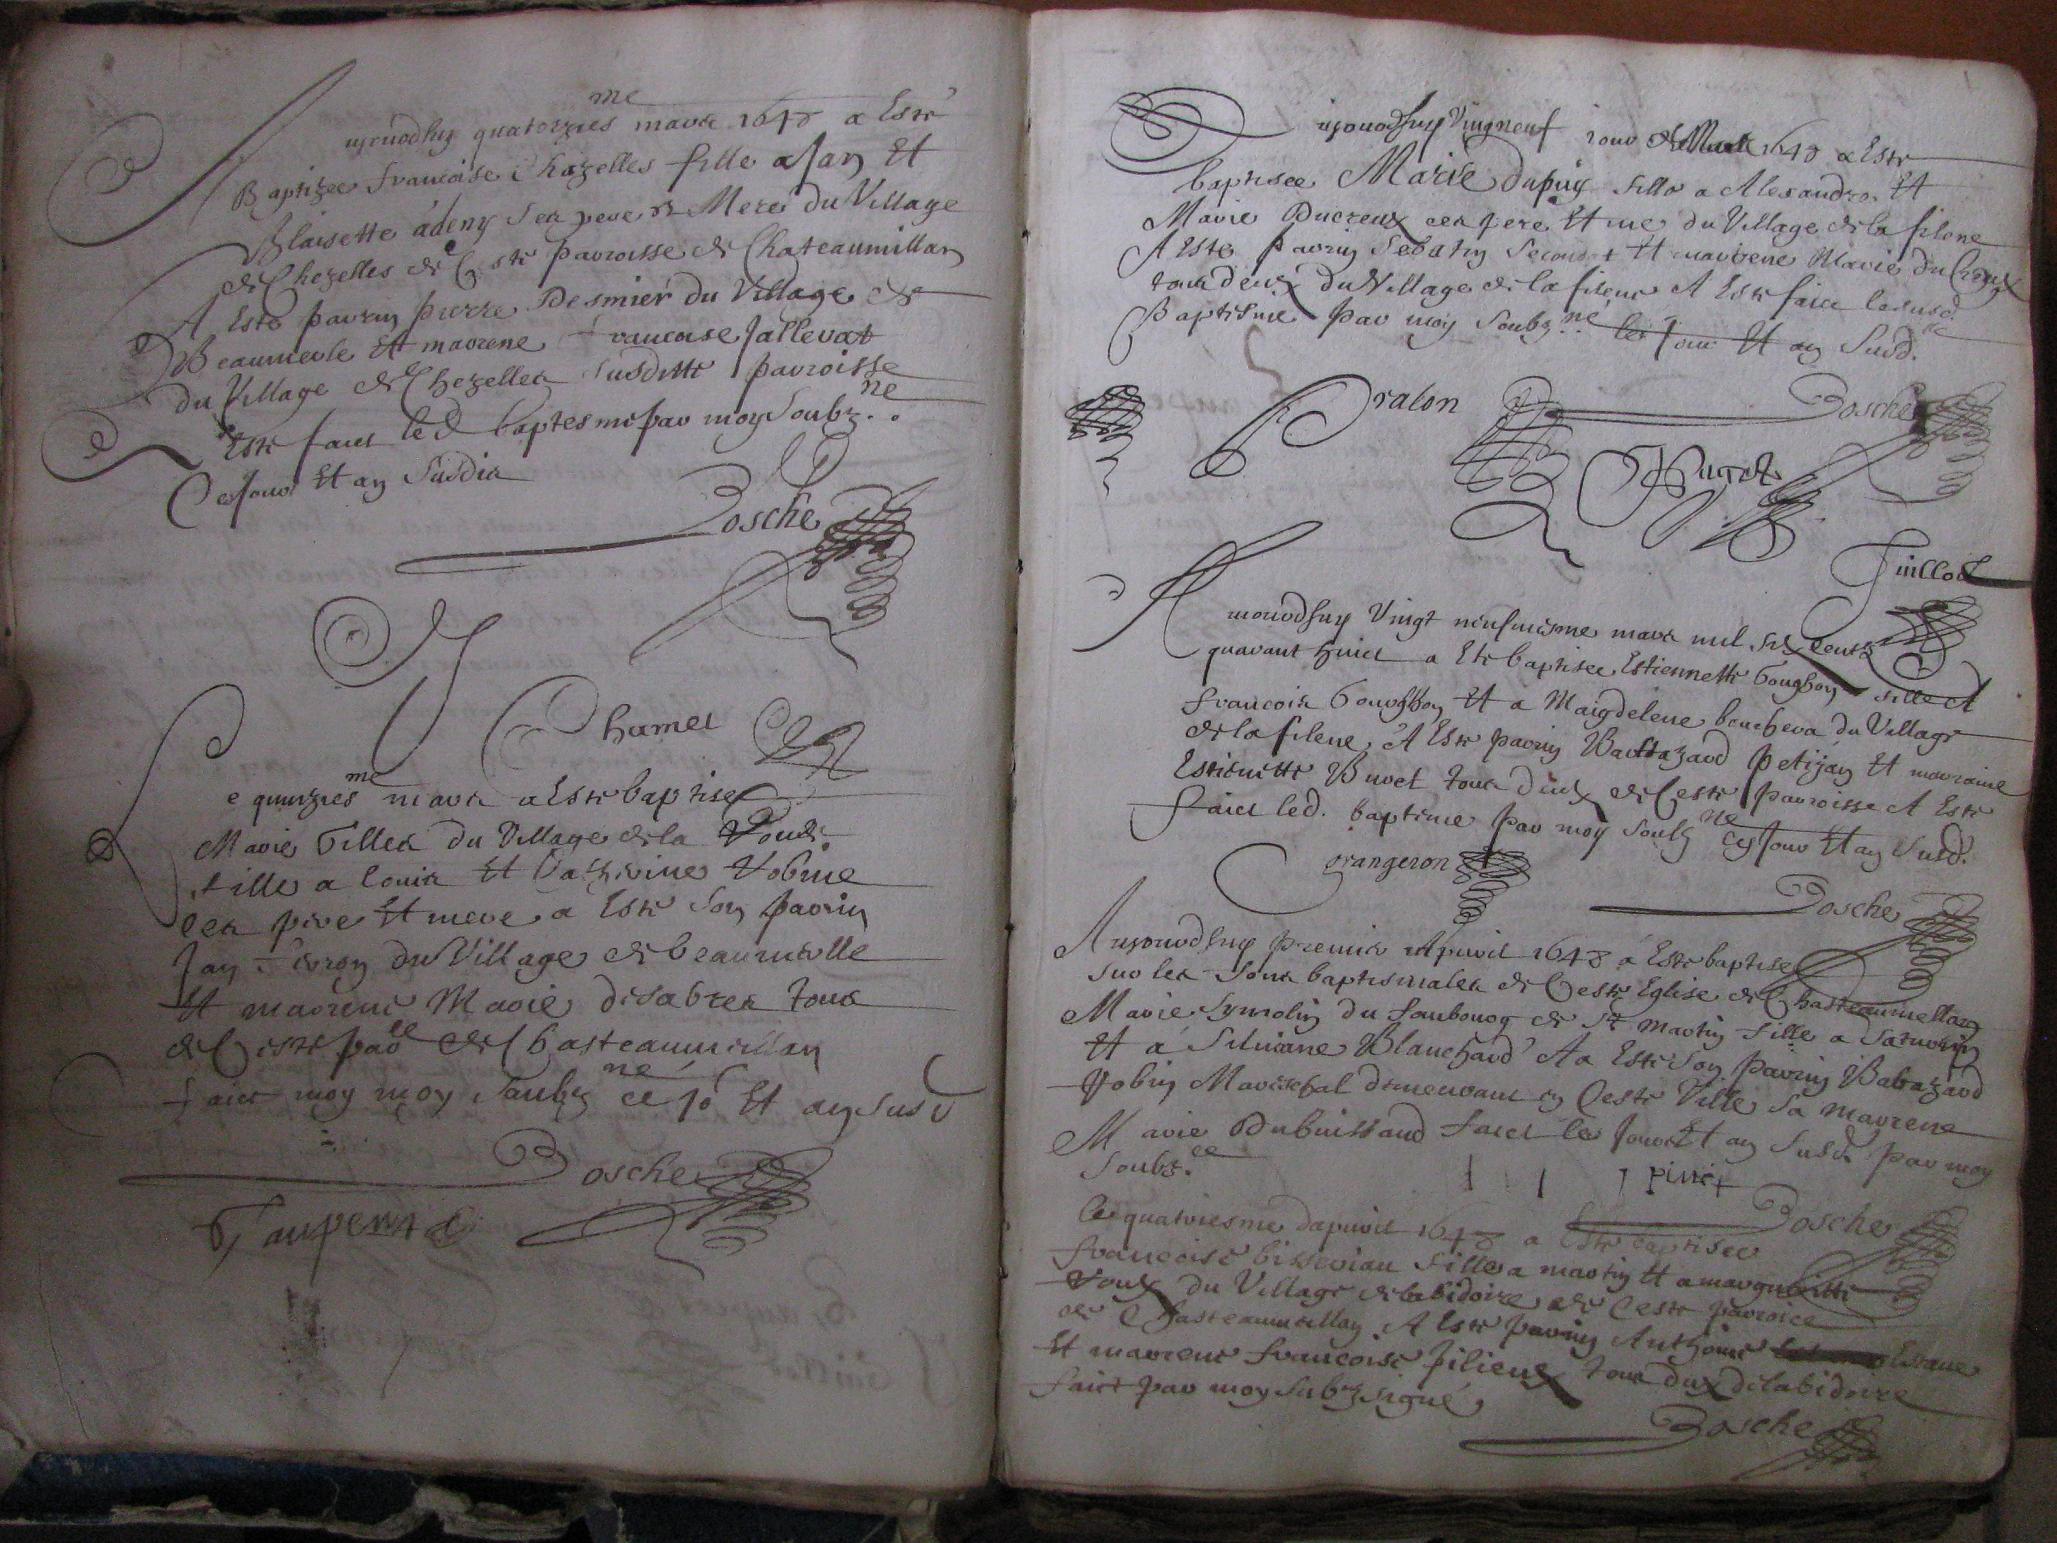 Aujourdhuy quatorzies me mars 1648 a Esté
Baptizee francoise Chazelles fille a Jan Et
Blaisette adeny Ses pere et Mere du Village
de Chezelles de Ceste parroisse de Chateaumillan
A Esté parrin pierre Desmier du Village de
Beaumerle Et marene francoise Jallevat
du Village de Chezelles susditte parroisse
Este faict led baptesme par moy Soubz.ne
Ce Jour Et an Susdit
Bosche
Chamel
Le quinzies me mars a Este baptisee
Marie Gilles du Village de la
fille a louis Et Catherine
ces pere Et mere a Esté Son parrin
Jan du Village de beaumerlle
Et marrene Marie desabres tous
de Ceste par ce de Chasteaumeillan
faict moy moy Soubz ne ce Jo r Et an Susd
Bosche
Taupenat
Aujourdhuy Vingneuf Jour de Mars 1648 a Este
baptisee Marie dupuy fille a Alexandre Et
Marie Ducreux ces pere Et me du Village de la filene
A Este parrin Sebatin Second Et marrene Marie du Creux
tous deux du Village de la filene A Este faict lesusd
Baptesme par moy Soubz.ne les Jour Et an Susd.
Pralon
Bosche
Huget
Guillot
Aujourdhuy Vingt neufuiesme mars mil six Cents
quarant huict a Ete baptisee Estiennette Goughon fille A
francois Goughon Et a Maigdelene bouchera du Village
de la filene, A Este parrin Baltazard petijan Et marraine
Estienette Buret tous deux de Ceste parroisse A Este
faict led. baptême par moy Soubz ne Ces Jour Et an Susd.
grangeron
Bosche
Aujourdhuy premier Apuril 1648 a Este baptisee
sur les fons baptismales de Ceste Eglise de Chasteaumellan
Marie Symolin du fauboug de St martin fille a Saturnin
Et a Silviane Blanchard A a Este Son parrin Baltazard
Robin Mareschal demeurant en Ceste Ville sa marrene
Marie Dubuissaud faict les Jour Et an Susd. par moy
Soubz.ce
pinet
Bosche
Ce quatriesme dapuril 1648 a Este baptisee
francoise bisserian fille a martin Et a margueritte
Roux du Village delabidoire de Ceste parroice
de Chasteaumeillan, A Este parrin Anthoine Estaue
Et marrene francoise filieux tous deux delabidoire
faict par moy Subz signé,
Bosche